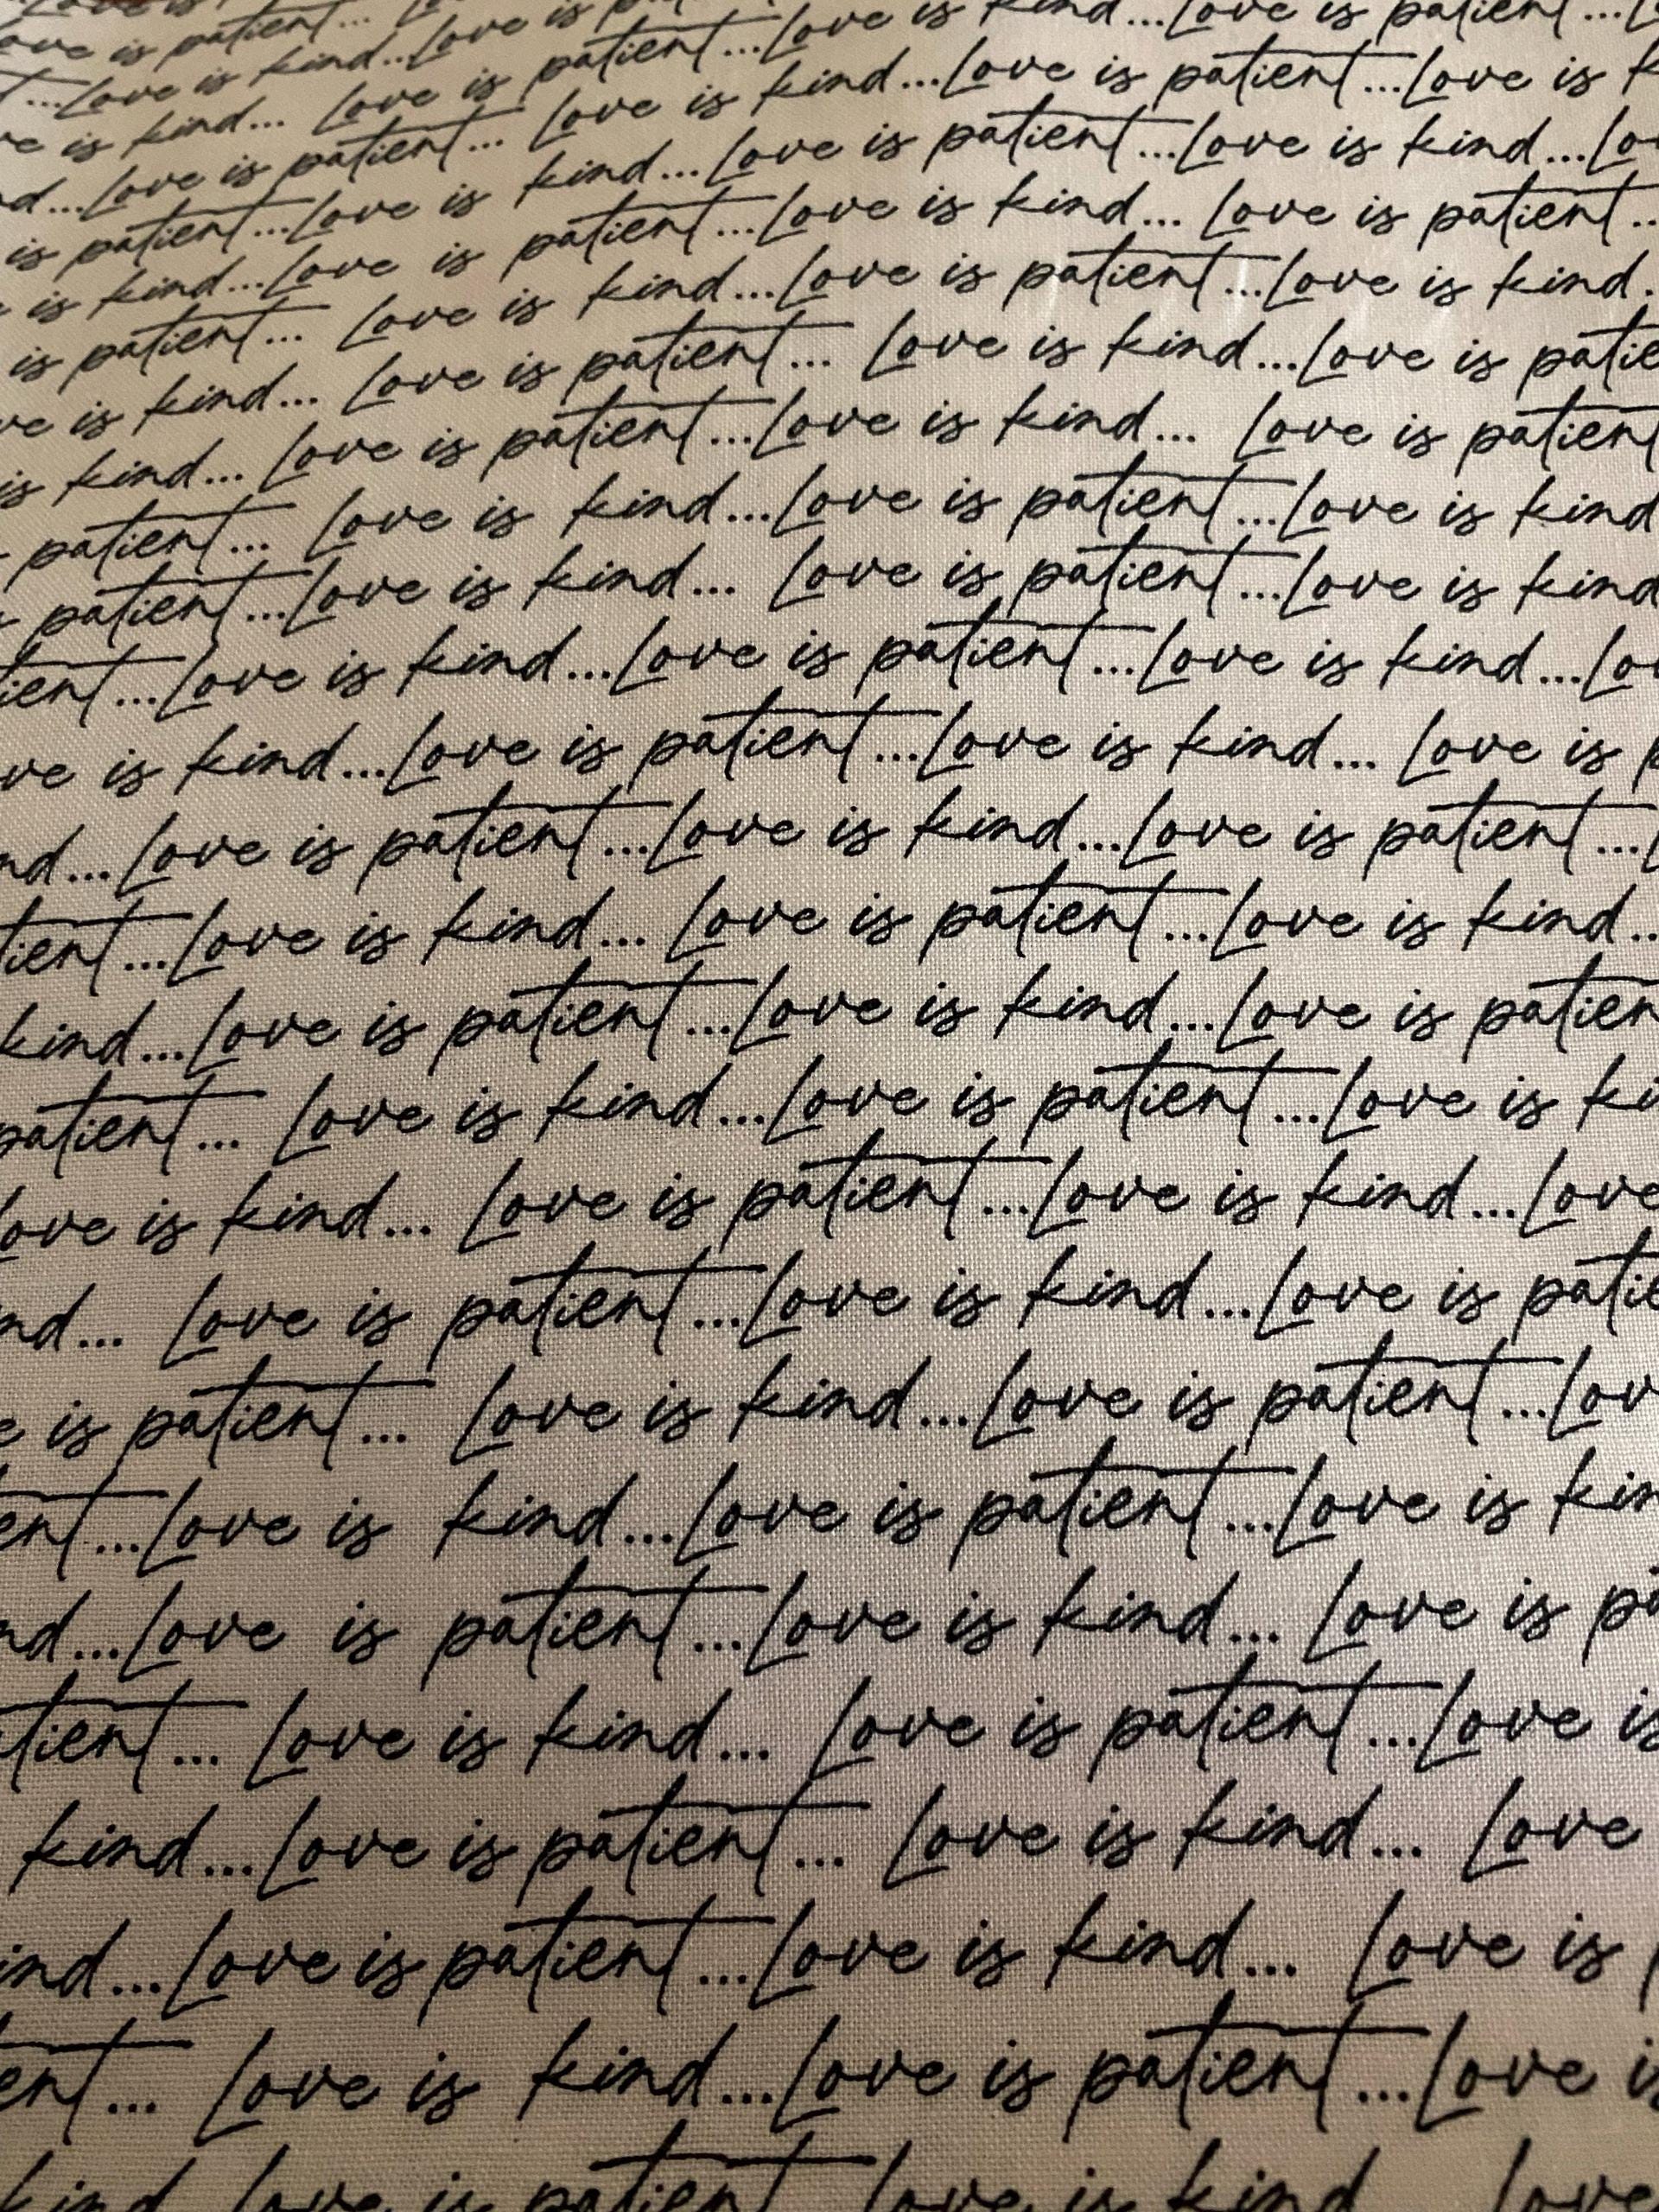 Love is
is patient... Love is kind...Love is patient...Love
...Love is kind...Love is patient...Love is kind...Love is
is kind... Love is patient... Love is kind...Love is patient...Love is kind...Lo
nd...Love is patient...Love is kind...Love is patient...Love is kind...
is patient...Love is kind...Love is patient...Love is kind... Love is patient..
is kind...Love is patient...Love is kind...Love is patient...Love is kind.
is patient... Love is kind...Love is patient...Love is kind...
ve is kind... Love is patient... Love is kind...Love is patie
is kind... Love is patient...Love is kind... Love is patient
patient... Love is kind...Love is patient...Love is kind
patient...Love is kind... Love is patient...Love is kind
ient...Love is kind...Love is patient...Love is kind...Lo
ve is kind...Love is patient...Love is kind... Love is p
nd...Love is patient...Love is kind...Love is patient...L
tient...Love is kind... Love is patient...Love is kind..
kind...Love is patient...Love is kind...Love is patien
patient... Love is kind...Love is patient...Love is ki
Love is kind... Love is patient...Love is kind...Love
nd... Love is patient...Love is kind...Love is patie
e is patient... Love is kind...Love is patient...Lov
ent...Love is kind...Love is patient...Love is kin
nd...Love is patient...Love is kind... Love is pa
tient... Love is kind... Love is patient...Love is
kind...Love is patient... Love is kind... Love
ind...Love is patient...Love is kind... Love is
ent... Love is kind...Love is patient...Love is
kind Love is patient Love is kind Love